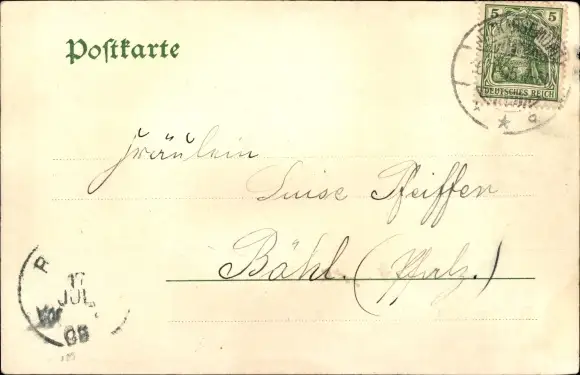 Postkarte
5 5
DEUTSCHES REICH
Fräulein
Luise Pfeiffer
Böhl. (Pfalz.)
17
JUL
05